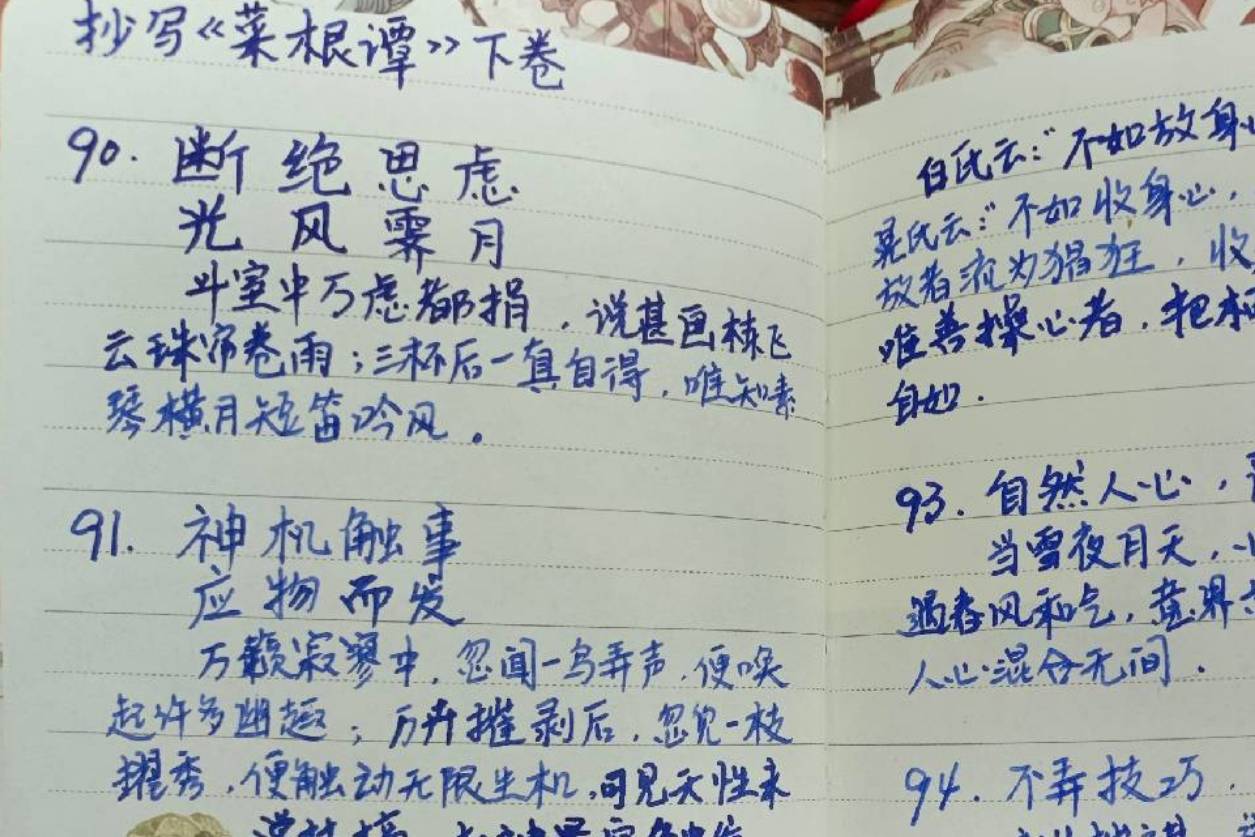 抄写《菜根谭》下卷
90. 断绝思虑
光风霁月
斗室中万虑都捐，说甚画栋飞
云珠帘卷雨；三杯后一真自得，唯知素
琴横月短笛吟风。
91. 神机触事
应物而发
万籁寂寥中，忽闻一鸟弄声，便唤
起许多幽趣；万卉摧剥后，忽见一枝
擢秀，便触动无限生机，可见天性未
白氏云："不如放身
晁氏云："不如收身心，
放者流为猖狂，收
唯善操心者，把柄
自如．
93. 自然人心，
当雪夜月天，
遇春风和气，意界
人心混合无间．
94. 不弄技巧．